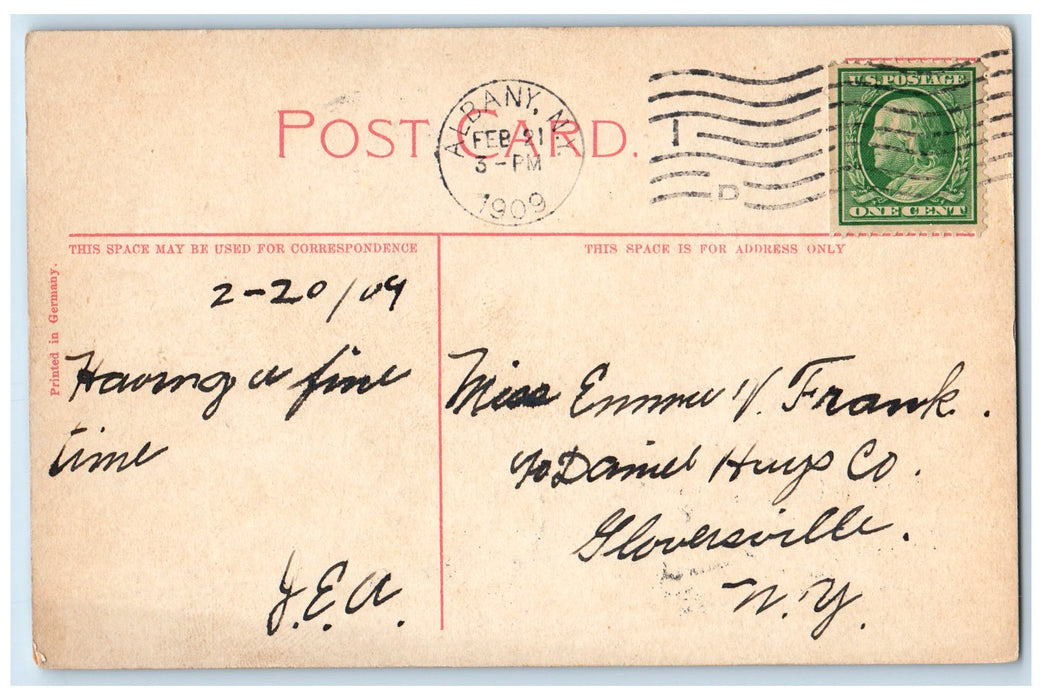 POST CARD.
ALBANY, N.Y.
FEB 21
3-PM
1909
1
D
U.S.POSTAGE
ONE CENT
THIS SPACE MAY BE USED FOR CORRESPONDENCE
THIS SPACE IS FOR ADDRESS ONLY
Printed in Germany.
2-20/09
Having a fine
time
J.E.A.
Miss Emma V. Frank.
c/o Daniel Hays Co.
Gloversville.
N.Y.